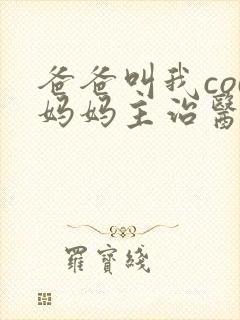 爸爸叫我co
妈妈主治醫
羅寶綫